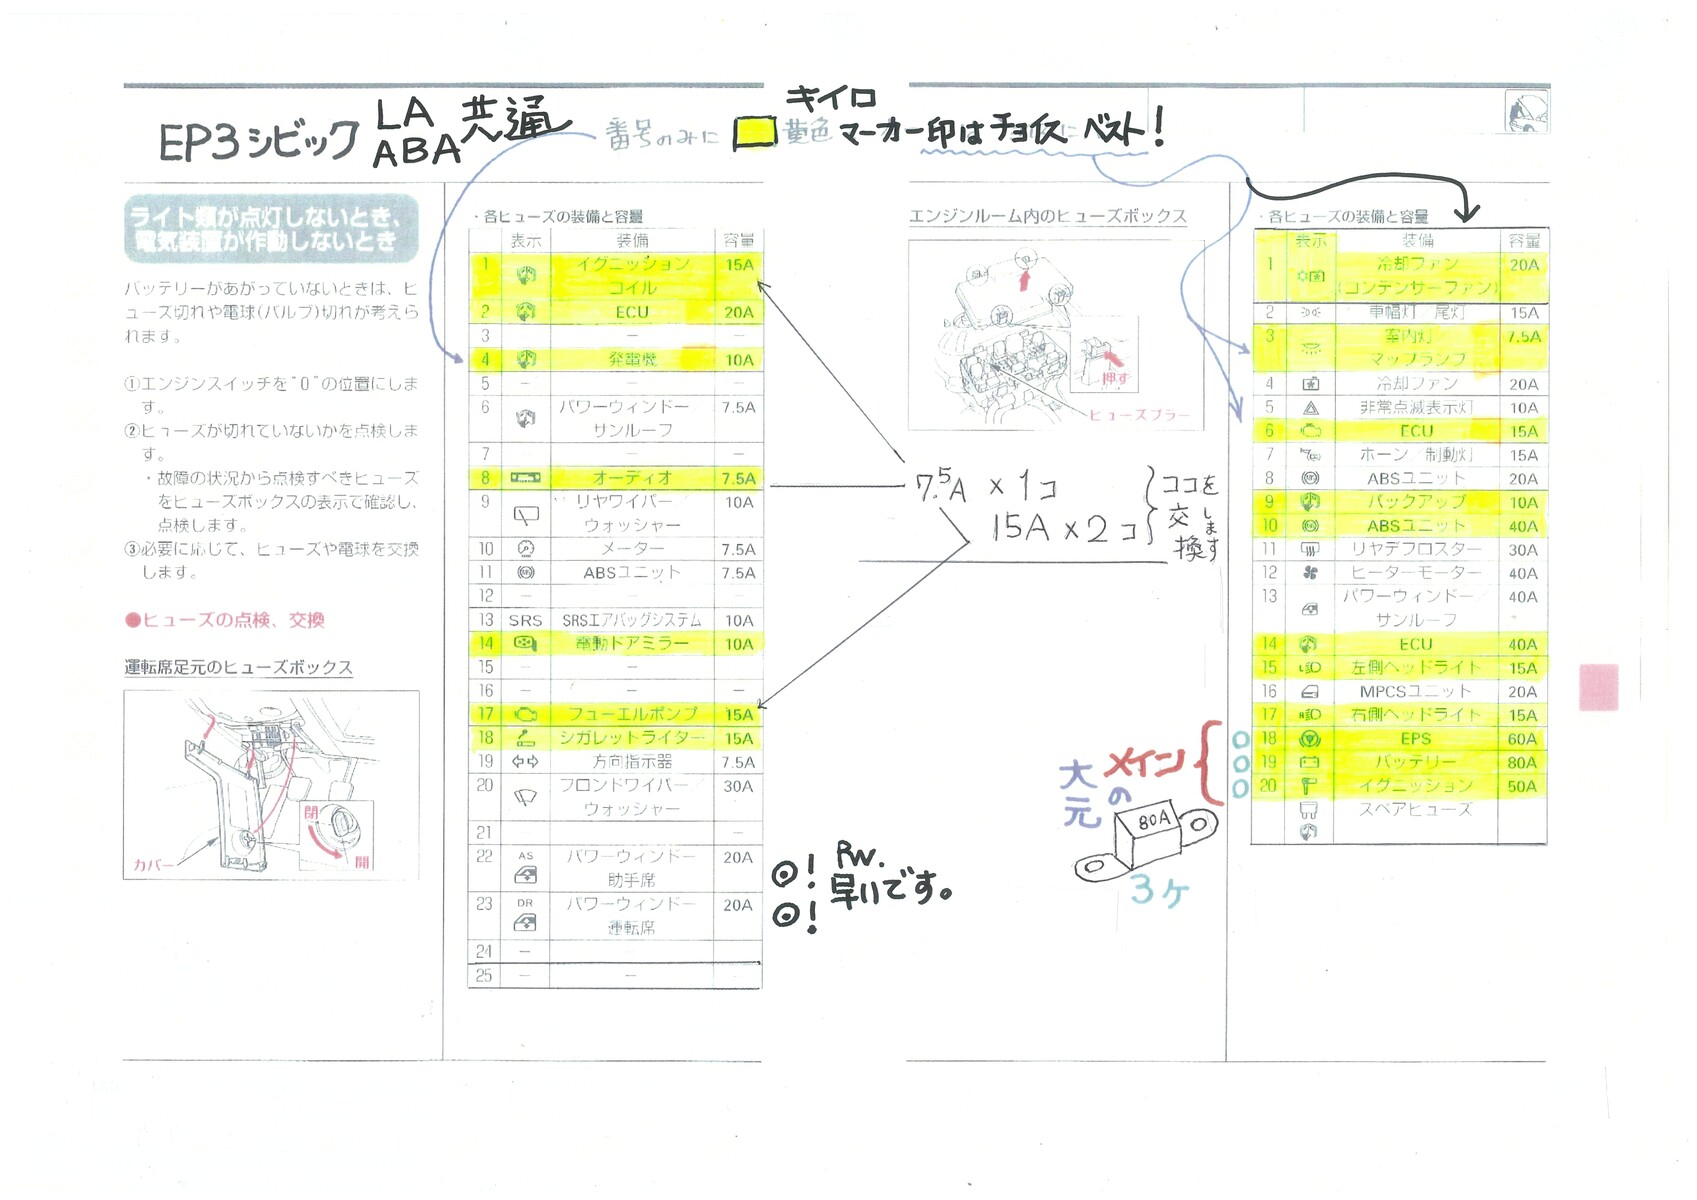 EP3シビック LA 共通
ABA
番号のみに 黄色
キイロ
マーカー印はチョイス ベスト!
ライト類が点灯しないとき、
電気装置が作動しないとき
バッテリーがあがっていないときは、ヒ
ューズ切れや電球(バルブ)切れが考えら
れます。
①エンジンスイッチを"0"の位置にしま
す。
②ヒューズが切れていないかを点検しま
す。
・故障の状況から点検すべきヒューズ
をヒューズボックスの表示で確認し、
点検します。
③必要に応じて、ヒューズや電球を交換
します。
●ヒューズの点検、交換
運転席足元のヒューズボックス
カバー
閉
開
・各ヒューズの装備と容量
表示 装備 容量
1 イグニッション 15A
コイル
2 ECU 20A
3 － － －
4 発電機 10A
5 － － －
6 パワーウィンドー 7.5A
サンルーフ
7 － － －
8 オーディオ 7.5A
9 リヤワイパー 10A
ウォッシャー
10 メーター 7.5A
11 ABSユニット 7.5A
12 － － －
13 SRS SRSエアバッグシステム 10A
14 電動ドアミラー 10A
15 － － －
16 － － －
17 フューエルポンプ 15A
18 シガレットライター 15A
19 方向指示器 7.5A
20 フロンドワイパー 30A
ウォッシャー
21 －
22 AS パワーウィンドー 20A
助手席
23 DR パワーウィンドー 20A
運転席
24 －
25 － －
7.5A × 1コ
15A × 2コ
ココを
交換
します
◎! PW.
◎! 早いです。
エンジンルーム内のヒューズボックス
押す
ヒューズプラー
大元の
メイン
80A
3ケ
・各ヒューズの装備と容量
表示 装備 容量
1 冷却ファン 20A
(コンデンサーファン)
2 車幅灯 尾灯 15A
3 室内灯 7.5A
マップランプ
4 冷却ファン 20A
5 非常点滅表示灯 10A
6 ECU 15A
7 ホーン 制動灯 15A
8 ABSユニット 20A
9 バックアップ 10A
10 ABSユニット 40A
11 リヤデフロスター 30A
12 ヒーターモーター 40A
13 パワーウィンドー 40A
サンルーフ
14 ECU 40A
15 左側ヘッドライト 15A
16 MPCSユニット 20A
17 右側ヘッドライト 15A
18 EPS 60A
19 バッテリー 80A
20 イグニッション 50A
スペアヒューズ